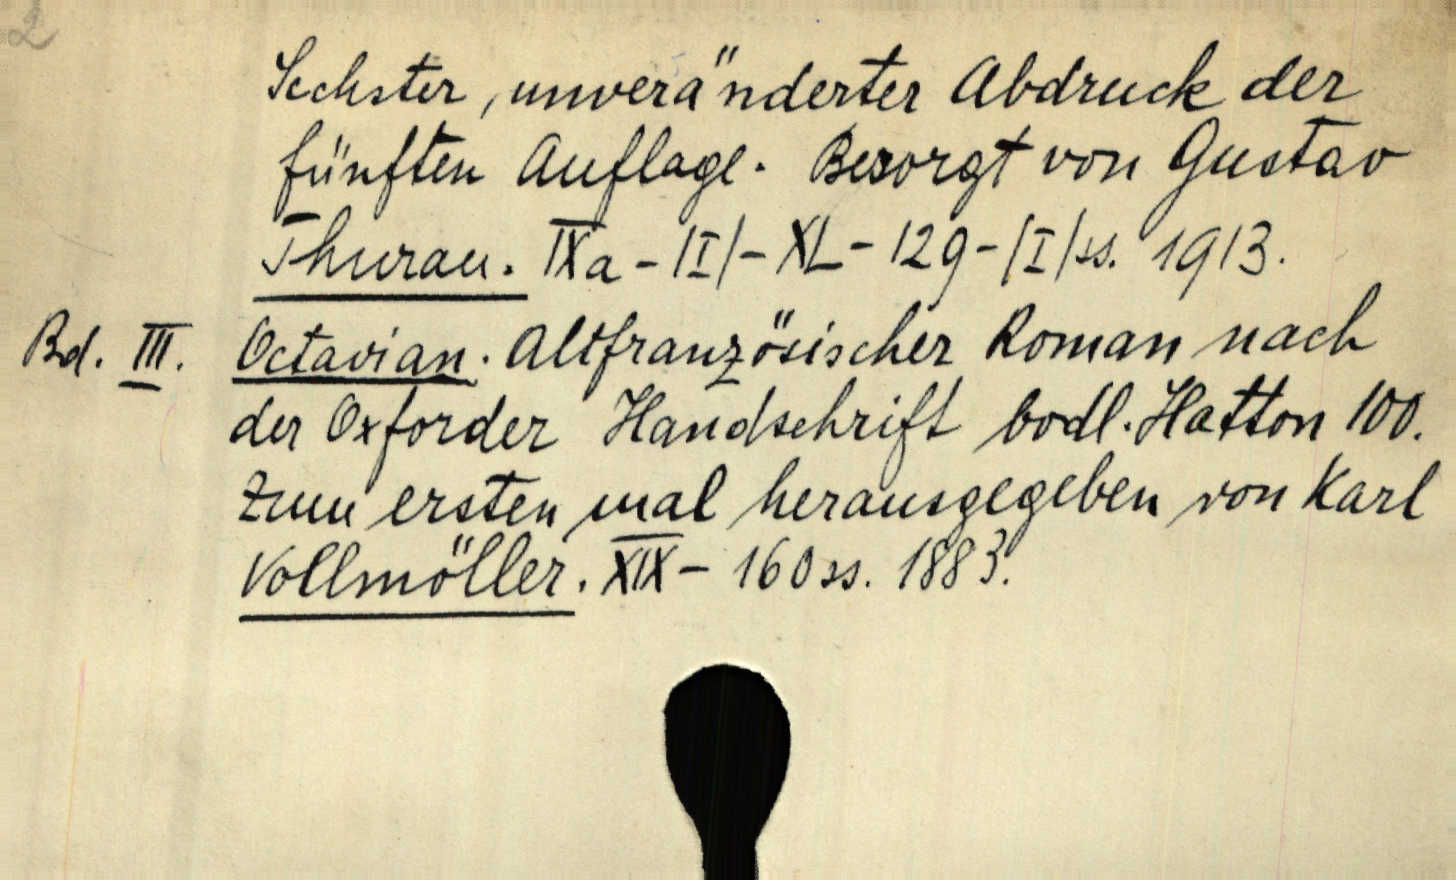 2
Sechster, unveränderter Abdruck der
fünften Auflage. Besorgt von Gustav
Thurau. IXa - /I/ - XL - 129 - /I/ ss. 1913.
Bd. III. Octavian. Altfranzösischer Roman nach
der Oxforder Handschrift bodl. Hatton 100.
Zum ersten mal herausgegeben von Karl
Vollmöller. XIX - 160 ss. 1883.